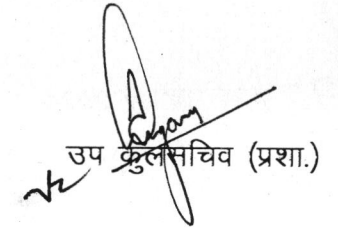 उप कुलसचिव (प्रशा.)